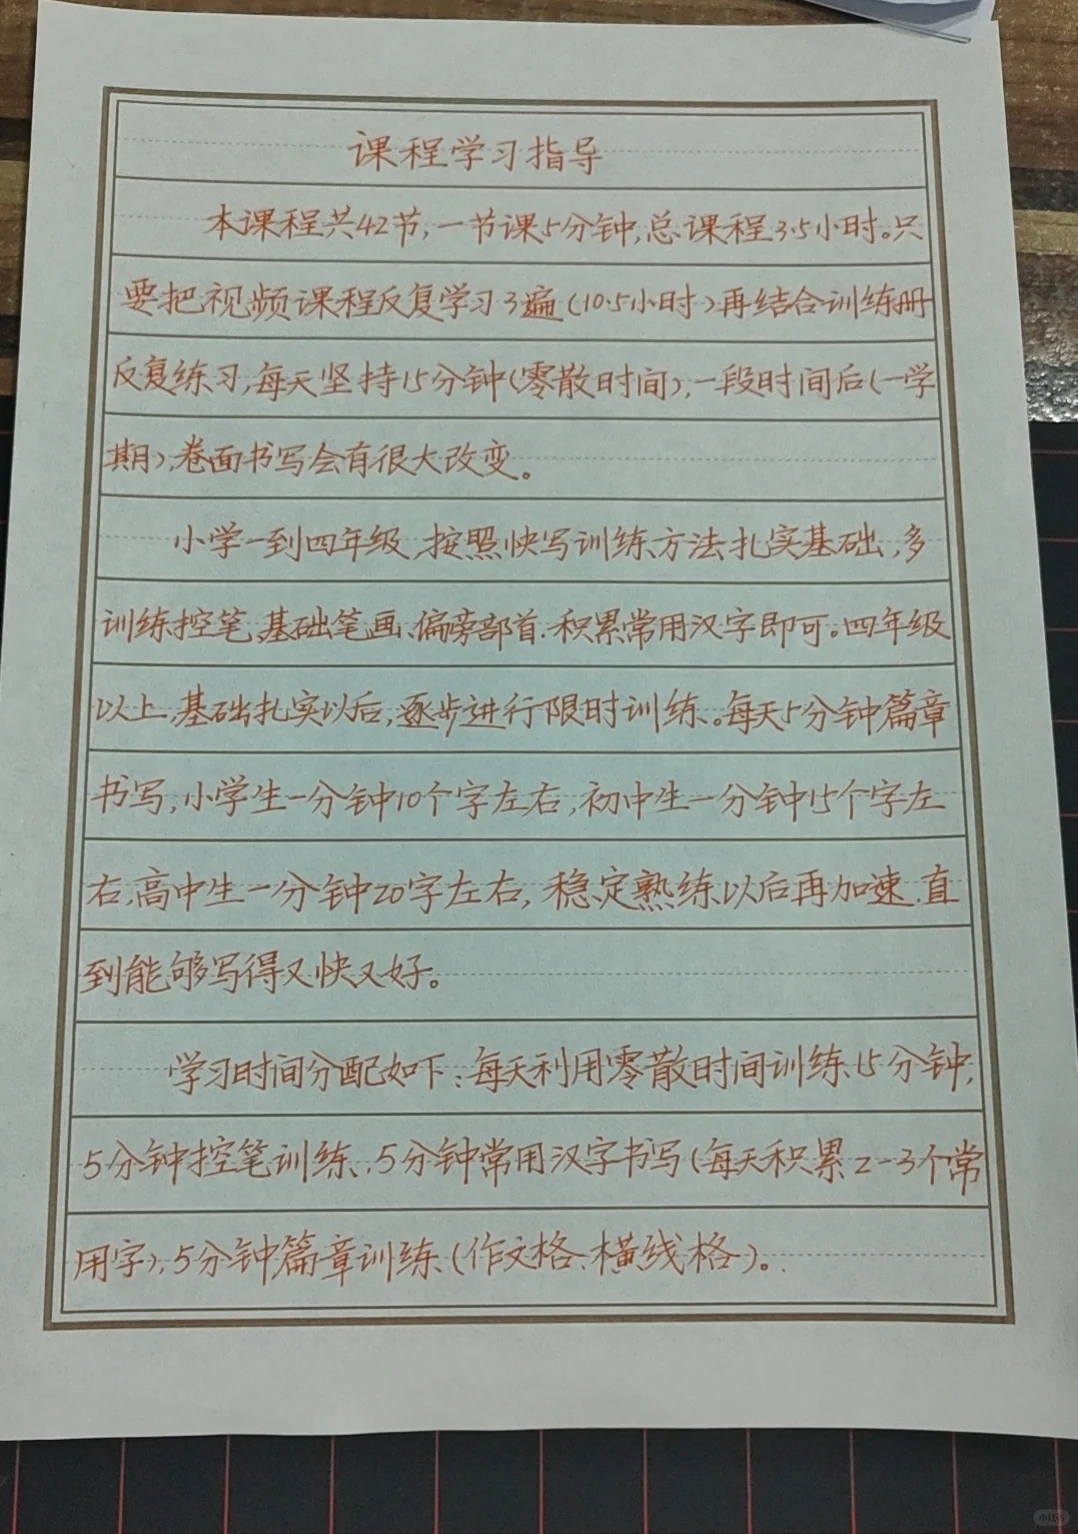 课程学习指导
本课程共42节,一节课5分钟,总课程3.5小时。只
要把视频课程反复学习3遍(10.5小时)再结合训练册
反复练习,每天坚持15分钟(零散时间),一段时间后(一学
期),卷面书写会有很大改变。
小学一到四年级,按照快写训练方法扎实基础,多
训练控笔、基础笔画、偏旁部首.积累常用汉字即可。四年级
以上,基础扎实以后,逐步进行限时训练。每天5分钟篇章
书写,小学生一分钟10个字左右,初中生一分钟15个字左
右,高中生一分钟20字左右,稳定熟练以后再加速,直
到能够写得又快又好。
学习时间分配如下:每天利用零散时间训练15分钟,
5分钟控笔训练,5分钟常用汉字书写(每天积累2-3个常
用字),5分钟篇章训练(作文格、横线格)。
小红书